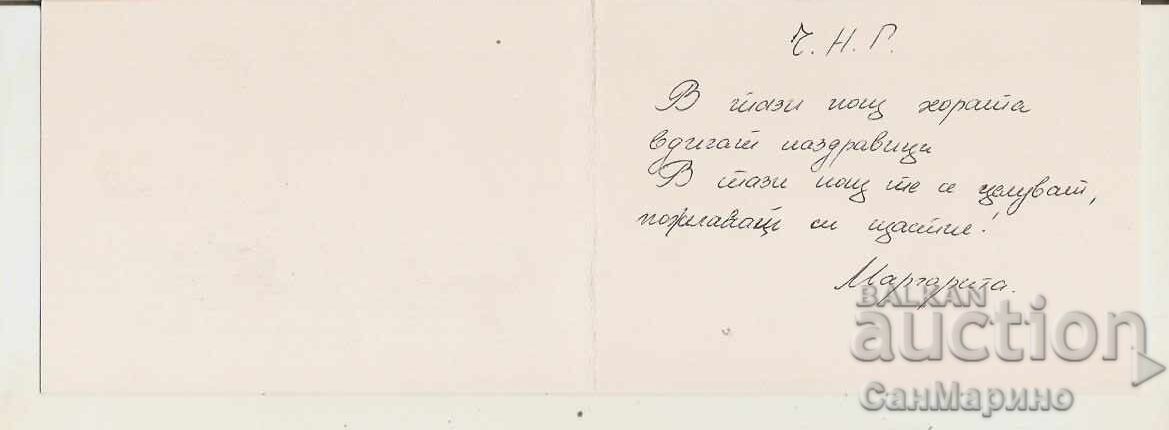 Ч. Н. Г.
В тази нощ хората
вдигат наздравици
В тази нощ те се целуват,
пожелават си щастие!
Маргарита.
BALKAN
auction
СанМарино